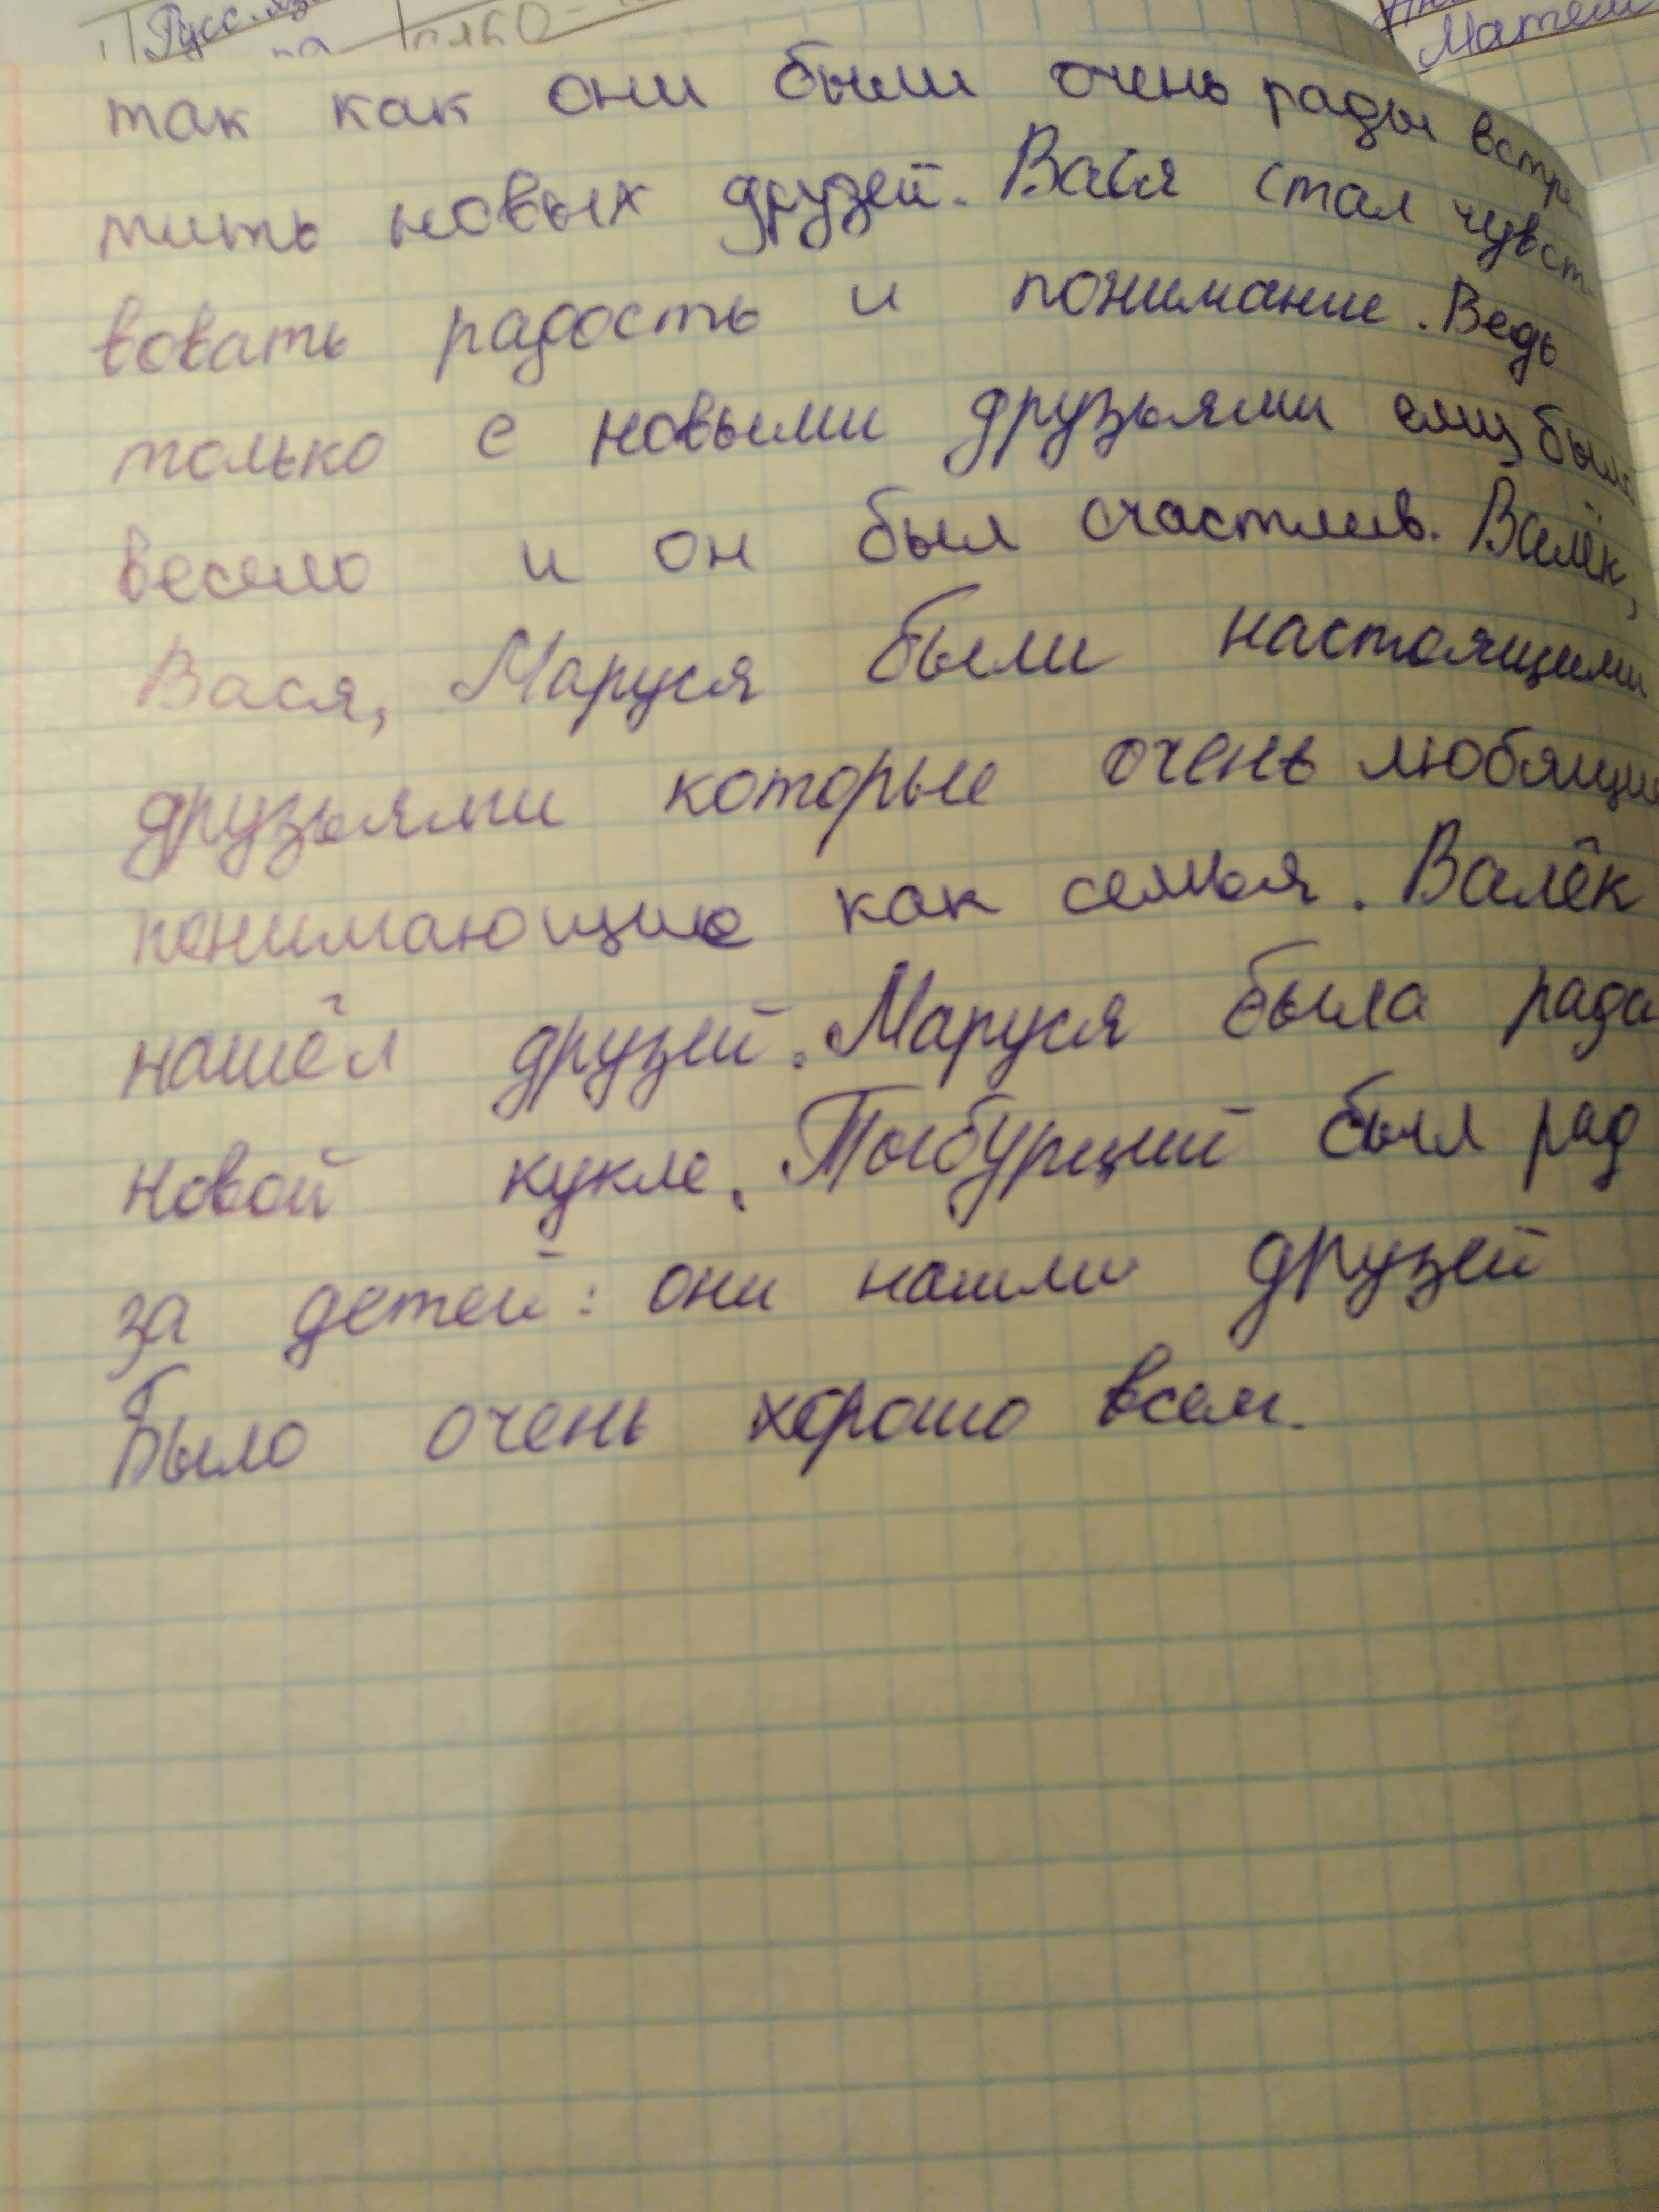 Русс.яз
Матем
так как они были очень рады встре
тить новых друзей. Вася стал чувст
вовать радость и понимание. Ведь
только с новыми друзьями ему было
весело и он был счастлив. Валёк,
Вася, Маруся были настоящими
друзьями которые очень любящие
понимающие как семья. Валёк
нашёл друзей. Маруся была рада
новой кукле. Тыбурций был рад
за детей: они нашли друзей
Было очень хорошо всем.